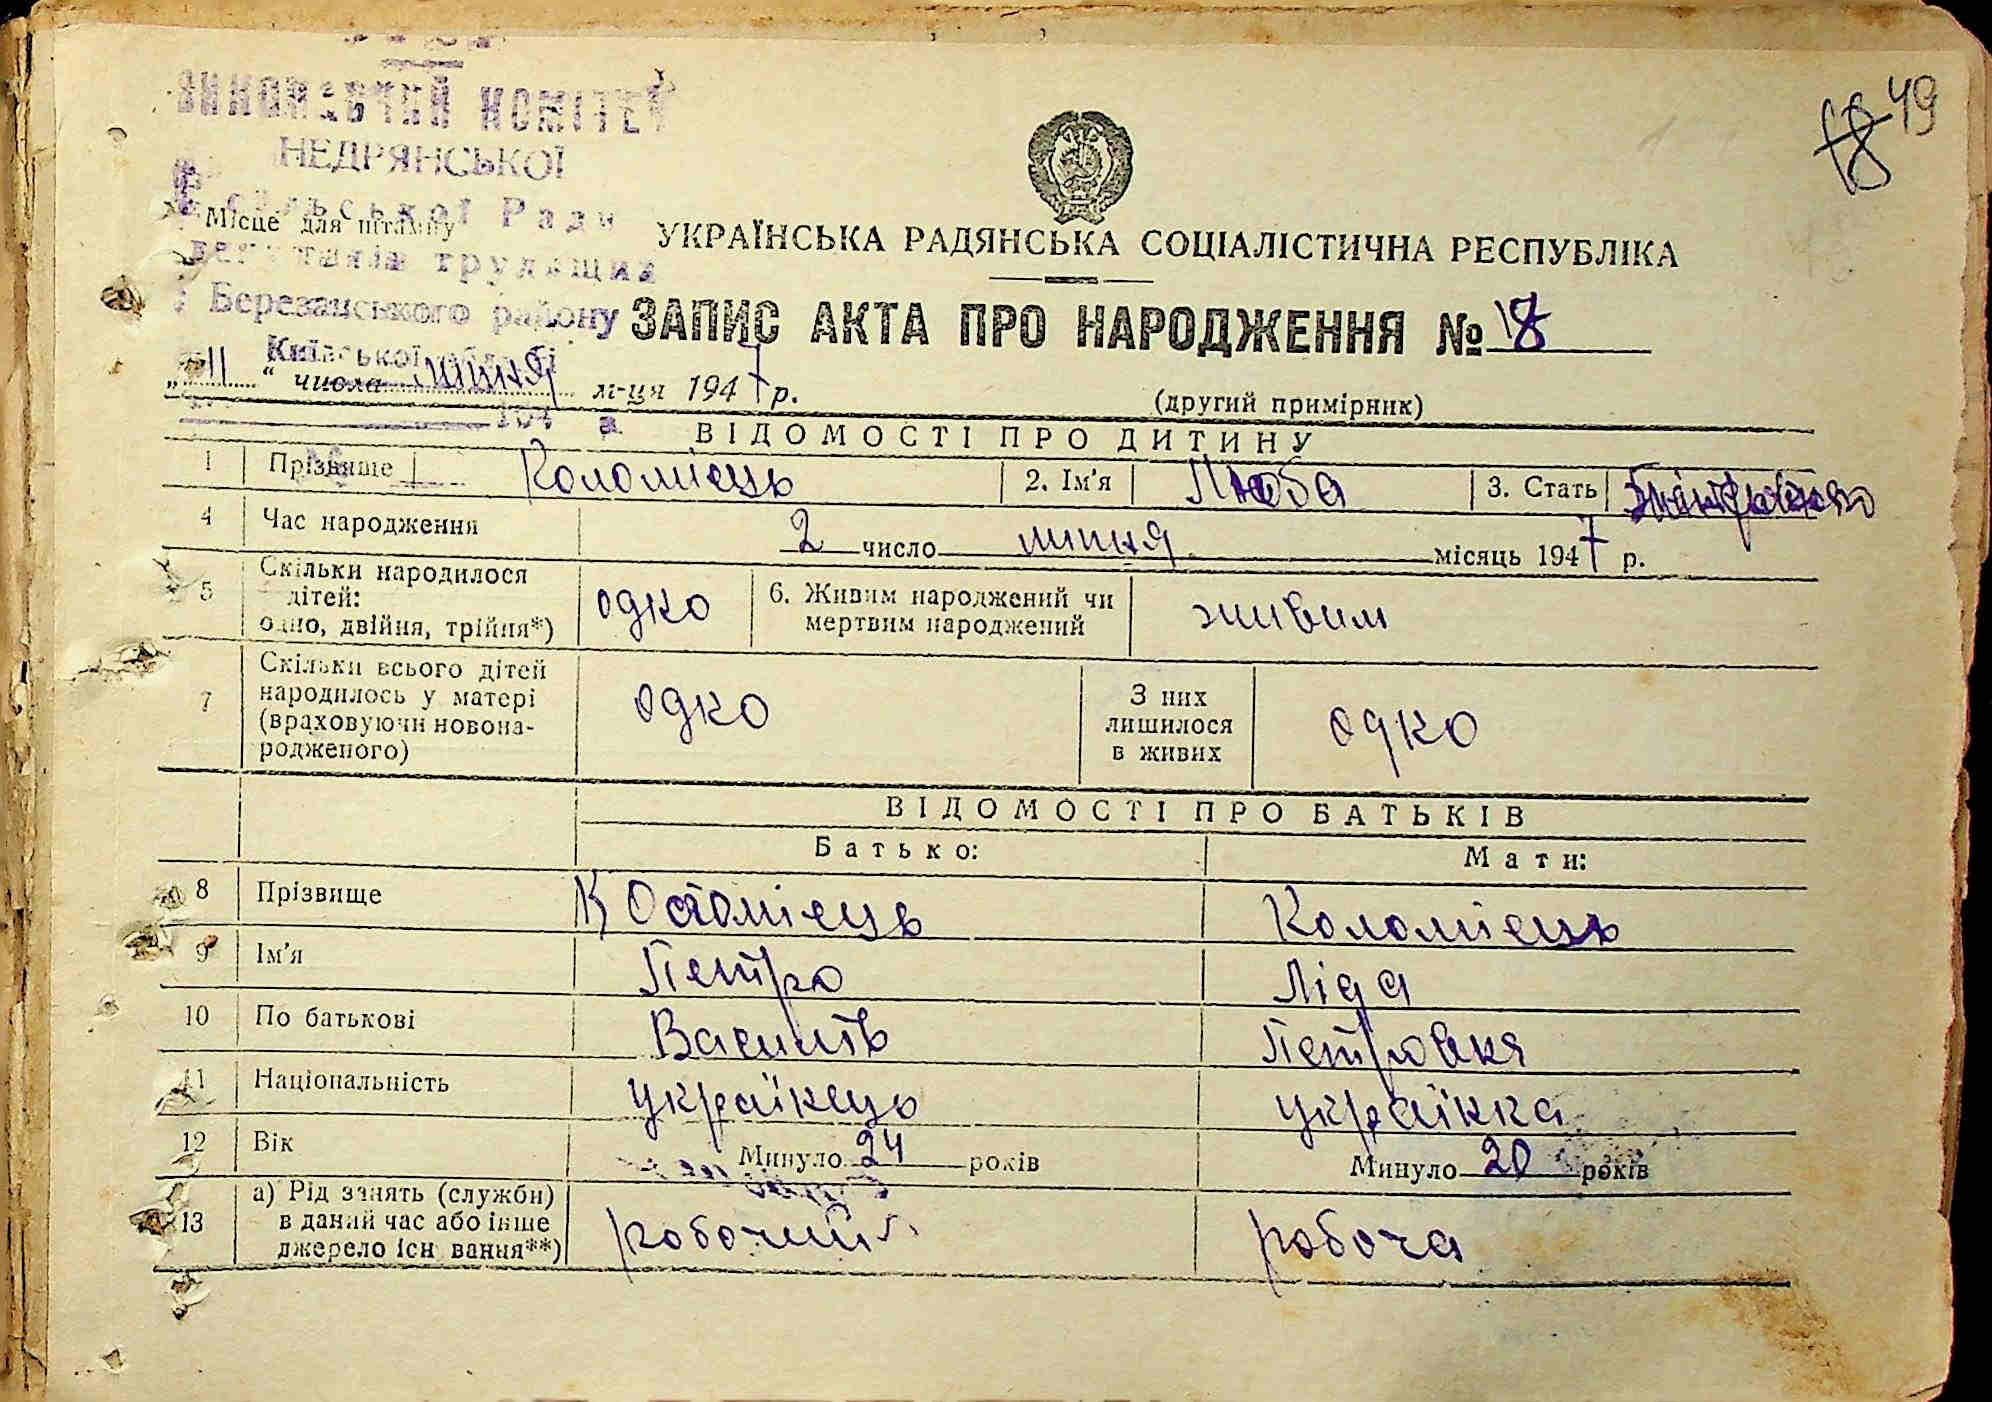 ВИКОНАВЧИЙ КОМІТЕТ
НЕДРЯНСЬКОЇ
сільської Ради
депутатів трудящих
Березанського району
Київської області
194 р.
№
Місце для штампу
18 49
УКРАЇНСЬКА РАДЯНСЬКА СОЦІАЛІСТИЧНА РЕСПУБЛІКА
ЗАПИС АКТА ПРО НАРОДЖЕННЯ № 18
„ 11 “ числа липня м-ця 1947 р.
(другий примірник)
ВІДОМОСТІ ПРО ДИТИНУ
1 Прізвище Коломієць 2. Ім'я Люба 3. Стать
4 Час народження 2 число липня місяць 1947 р.
5 Скільки народилося
дітей:
одно, двійня, трійня*) одно 6. Живим народжений чи
мертвим народжений живим
7 Скільки всього дітей
народилось у матері
(враховуючи новона-
родженого) одно З них
лишилося
в живих одно
ВІДОМОСТІ ПРО БАТЬКІВ
Батько: Мати:
8 Прізвище Коломієць Коломієць
9 Ім'я Петро Ліда
10 По батькові Василь Петровня
11 Національність українець українка
12 Вік Минуло 24 років Минуло 20 років
13 а) Рід занять (служби)
в даний час або інше
джерело існування**) робочий робоча